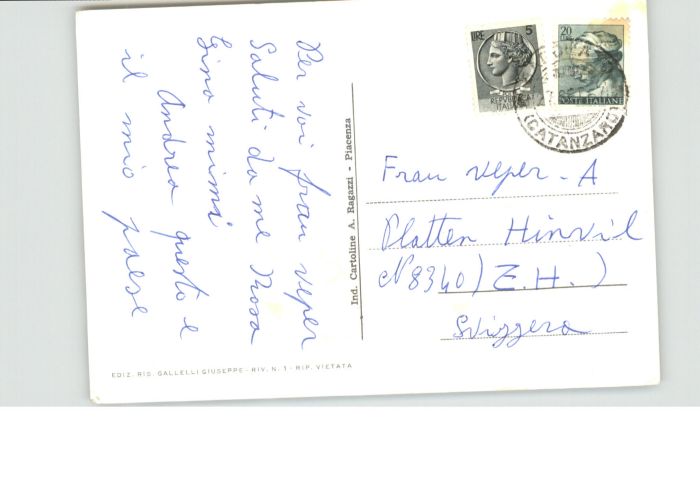 Per voi frau veper
Saluti da me Rosa
Gino mimi
Andrea questo e
il mio paese
Ind. Cartoline A. Ragazzi - Piacenza
LIRE 5
20
POSTE ITALIANE
(CATANZARO)
Frau veper - A
Platten Hinvil
N 8340) Z.H.)
Svizzera
EDIZ. RIS. GALLELLI GIUSEPPE - RIV. N. 1 - RIP. VIETATA